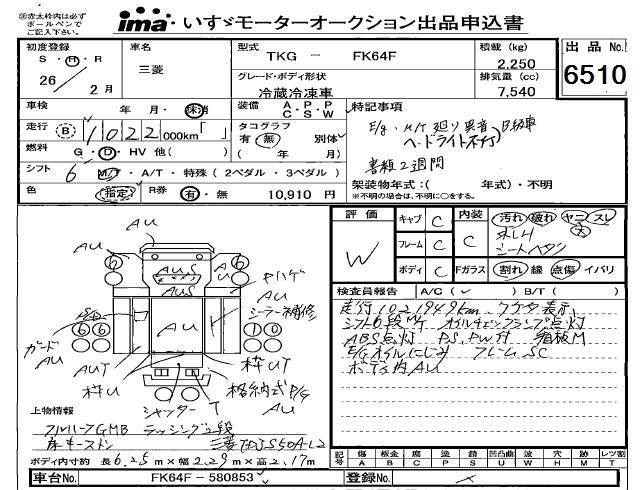 ※赤太枠内は必ず
ボールペンで
ご記入下さい。
ima いすゞモーターオークション出品申込書
初度登録 S・H・R 26年 2月
車名 三菱
型式 TKG － FK64F
グレード・ボディ形状 冷蔵冷凍車
積載 (kg) 2,250
排気量 (cc) 7,540
出品No. 6510
車検 年・月・抹消
装備 A・P・P C・S・W
特記事項
走行 B 1022 000km「 」
タコグラフ 有・無 別体 ( 年 月)
E/g・M/T 廻り異音
ヘッドライト不灯
書類2週間
燃料 G・D・HV 他( )
シフト 6 M/T・A/T・特殊(2ペダル・3ペダル)
色 (指定) R券 有・無 10,910 円
架装物年式:( 年式)・不明
※不明の場合は、不明に○をする。
評価 W
キャブ C
フレーム C
ボディ C
内装 C
Fガラス
汚れ 破れ ヤニ スレ 大
割れ 線 点傷 イバリ
検査員報告 A/C( ) B/T( )
走行1021949km
シフト6段M/T オイルチェックランプ点灯
ABS点灯 P.S, P.W付
E/Gオイルにじみ フレームSC
ボディ内AU
AU AU
AUS
AUS
AU
ヤハゲ
AU
シーラー補修
ガード
AU
AUT
枠U
枠UT
シャッター T
格納式P/G
AU
上物情報
ラッシング2段
床キーストン 三菱TDJS50A-L2
ボディ内寸約 長6.25m×幅2.29m×高2.17m
記号 傷A 板金B 腐C 塗P 錆S 凹凸曲U 波W 穴H 跡M レツ割T
車台No. FK64F－580853
登録No.